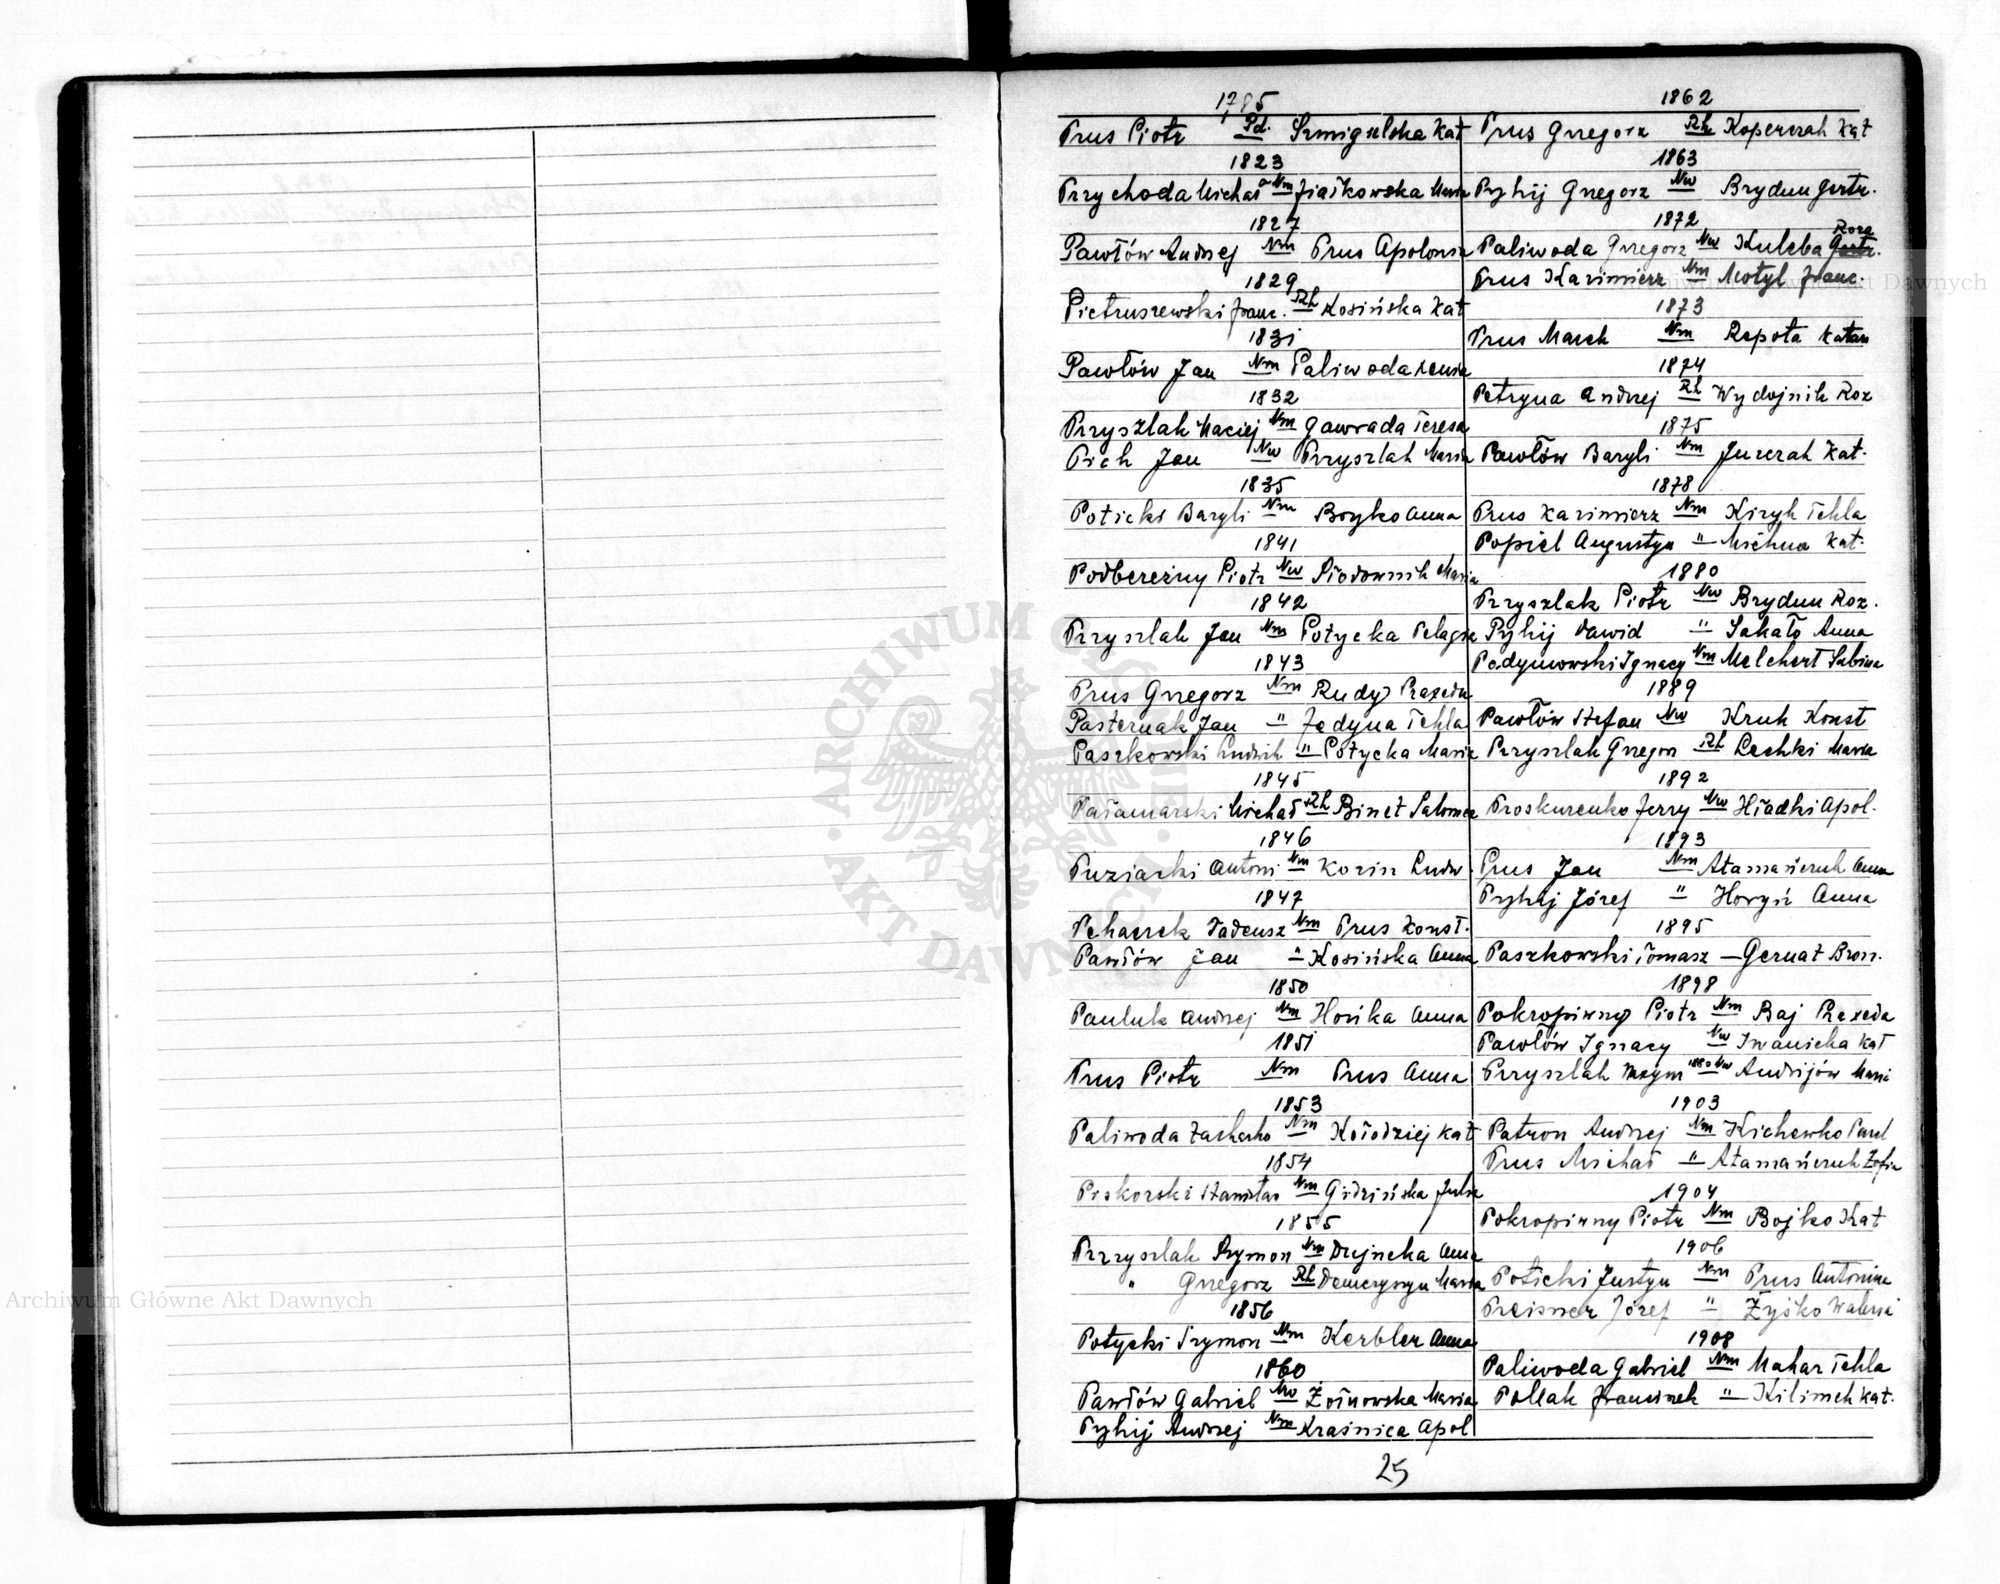 1785
Prus Piotr Pd. Szmigulska Kat
1823
Przychoda Michał Nm Fiałkowska Maria
1827
Pawłów Andrzej Nm Prus Apolonia
1829
Pietruszewski Franc. Rh Kosińska Kat
1831
Pawłów Jan Nm Paliwoda Xenia
1832
Przyszlak Maciej Nm Gawrada Teresa
Pich Jan Nw Przyszlak Maria
1835
Poticki Bazyli Nm Boyko Anna
1841
Podbereżny Piotr Nw Słodownik Maria
1842
Przyszlak Jan Nm Potycka Pelagia
1843
Prus Grzegorz Nm Rudy Praxeda
Pasternak Jan " Jedyna Tekla
Paszkowski Ludwik " Potycka Maria
1845
Pałamarski Michał Rh Binet Salomea
1846
Puziarki Antoni Nm Kozin Ludw.
1847
Pchaczek Tadeusz Nm Prus Konst.
Pawłów Jan " Kosińska Anna
1850
Pauluk Andrzej Nm Horika Anna
1851
Prus Piotr Nm Prus Anna
1853
Paliwoda Zacharko Nm Kołodziej Kat
1854
Piskorski Stanisław Nm Gidzińska Julia
1855
Przzyszlak Szymon Nm Dujneka Anna
" Grzegorz Rh Demczyszyn Maria
1856
Potycki Szymon Nm Kerbler Anna
1860
Pawłów Gabriel Nw Żołnowska Maria
Pyhij Andrzej Nm Kraśnica Apol
1862
Prus Grzegorz Rh Koperczak Kat
1863
Pyhij Grzegorz Nw Brydun Gertr.
1872
Paliwoda Grzegorz Nw Kuleba Gertr. Roza
Prus Kazimierz Nm Motyl Franc.
1873
Prus Marek Nm Rzpota Katarz
1874
Petryna Andrzej Rh Wydojnik Roz
1875
Pawłów Bazyli Nm Jurczak Kat.
1878
Prus Kazimierz Nm Kiryk Tekla
Popiel Augustyn " Michna Kat.
1880
Przyszlak Piotr Nw Brydun Roz.
Pyhij Dawid " Sakało Anna
Podymowski Ignacy Nm Melchert Sabina
1889
Pawłów Stefan Nw Kruk Konst
Przyszlak Grzegorz Rh Lechki Maria
1892
Proskurenko Jerzy Nw Hładki Apol.
1893
Prus Jan Nm Atamańczuk Anna
Pyhij Józef " Horyń Anna
1895
Paszkowski Tomasz — Gernat Bron.
1898
Pokropiwny Piotr Nm Baj Praxeda
Pawłów Ignacy Nw Iwanicka Kat
Przyszlak Maxym 1880 Nw Andrijów Maria
1903
Patron Andrzej Nm Kichewko Paul
Prus Michał " Atamańczuk Zofia
1904
Pokropiwny Piotr Nm Bojko Kat
1906
Poticki Justyn Nm Prus Antonina
Preisner Józef " Żyśko Waleria
1908
Paliwoda Gabriel Nm Makar Tekla
Pollak Franciszek " Kilimek Kat.
25
ARCHIWUM GŁÓWNE AKT DAWNYCH
Archiwum Główne Akt Dawnych
Archiwum Główne Akt Dawnych